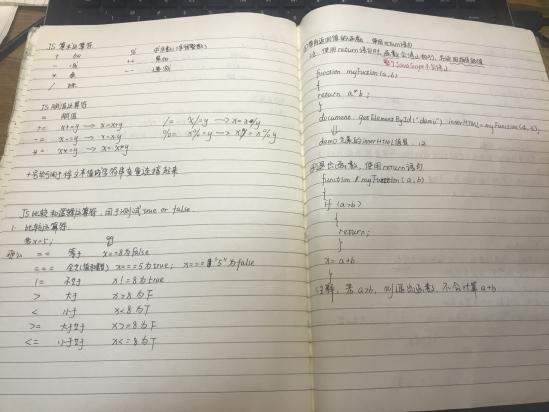 JS 算术运算符
+ 加 % 求余数(保留整数)
- 减 ++ 累加
* 乘 -- 递减
/ 除
JS 赋值运算符
= 赋值
+= x+=y → x=x+y /= x/=y → x=x/y
-= x-=y → x=x-y %= x%=y → x=x%y
*= x*=y → x=x*y
+号
JS 比较和逻辑运算符,用于测试true or false.
1. 比较运算符.
若x=5;
== 等于 x==8为false
=== 全等(值和类型) x===5为true; x==="5"为false
!= 不等于 x!=8为true
> 大于 x>8为F
< 小于 x<8为T
>= 大于等于 x>=8为F
<= 小于等于 x<=8为T
带有返回值的函数,使用return语句
注:使用return语句时,函数会停止执行,并返回指定的值
整个JavaScript不会停止
function myFuction(a,b)
{
return a*b;
}
document.getElementById("demo").innerHTML=myFunction(4,3);
demo元素的innerHTML值是:12
退出函数,使用return语句
function myFuction(a,b)
{
if (a>b)
{
return;
}
x=a+b
}
注释:若a>b,则退出函数,不会计算a+b